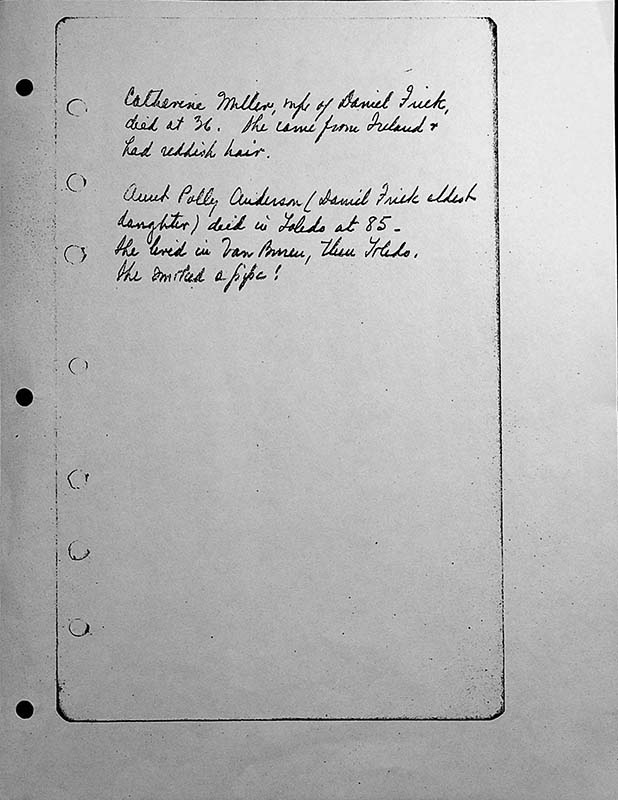 Catherine Miller, wife of Daniel Frick,
died at 36. She came from Ireland &
had reddish hair.
Aunt Polly Anderson (Daniel Frick oldest
daughter) died in Toledo at 85 -
She lived in Van Buren, then Toledo.
She smoked a pipe!